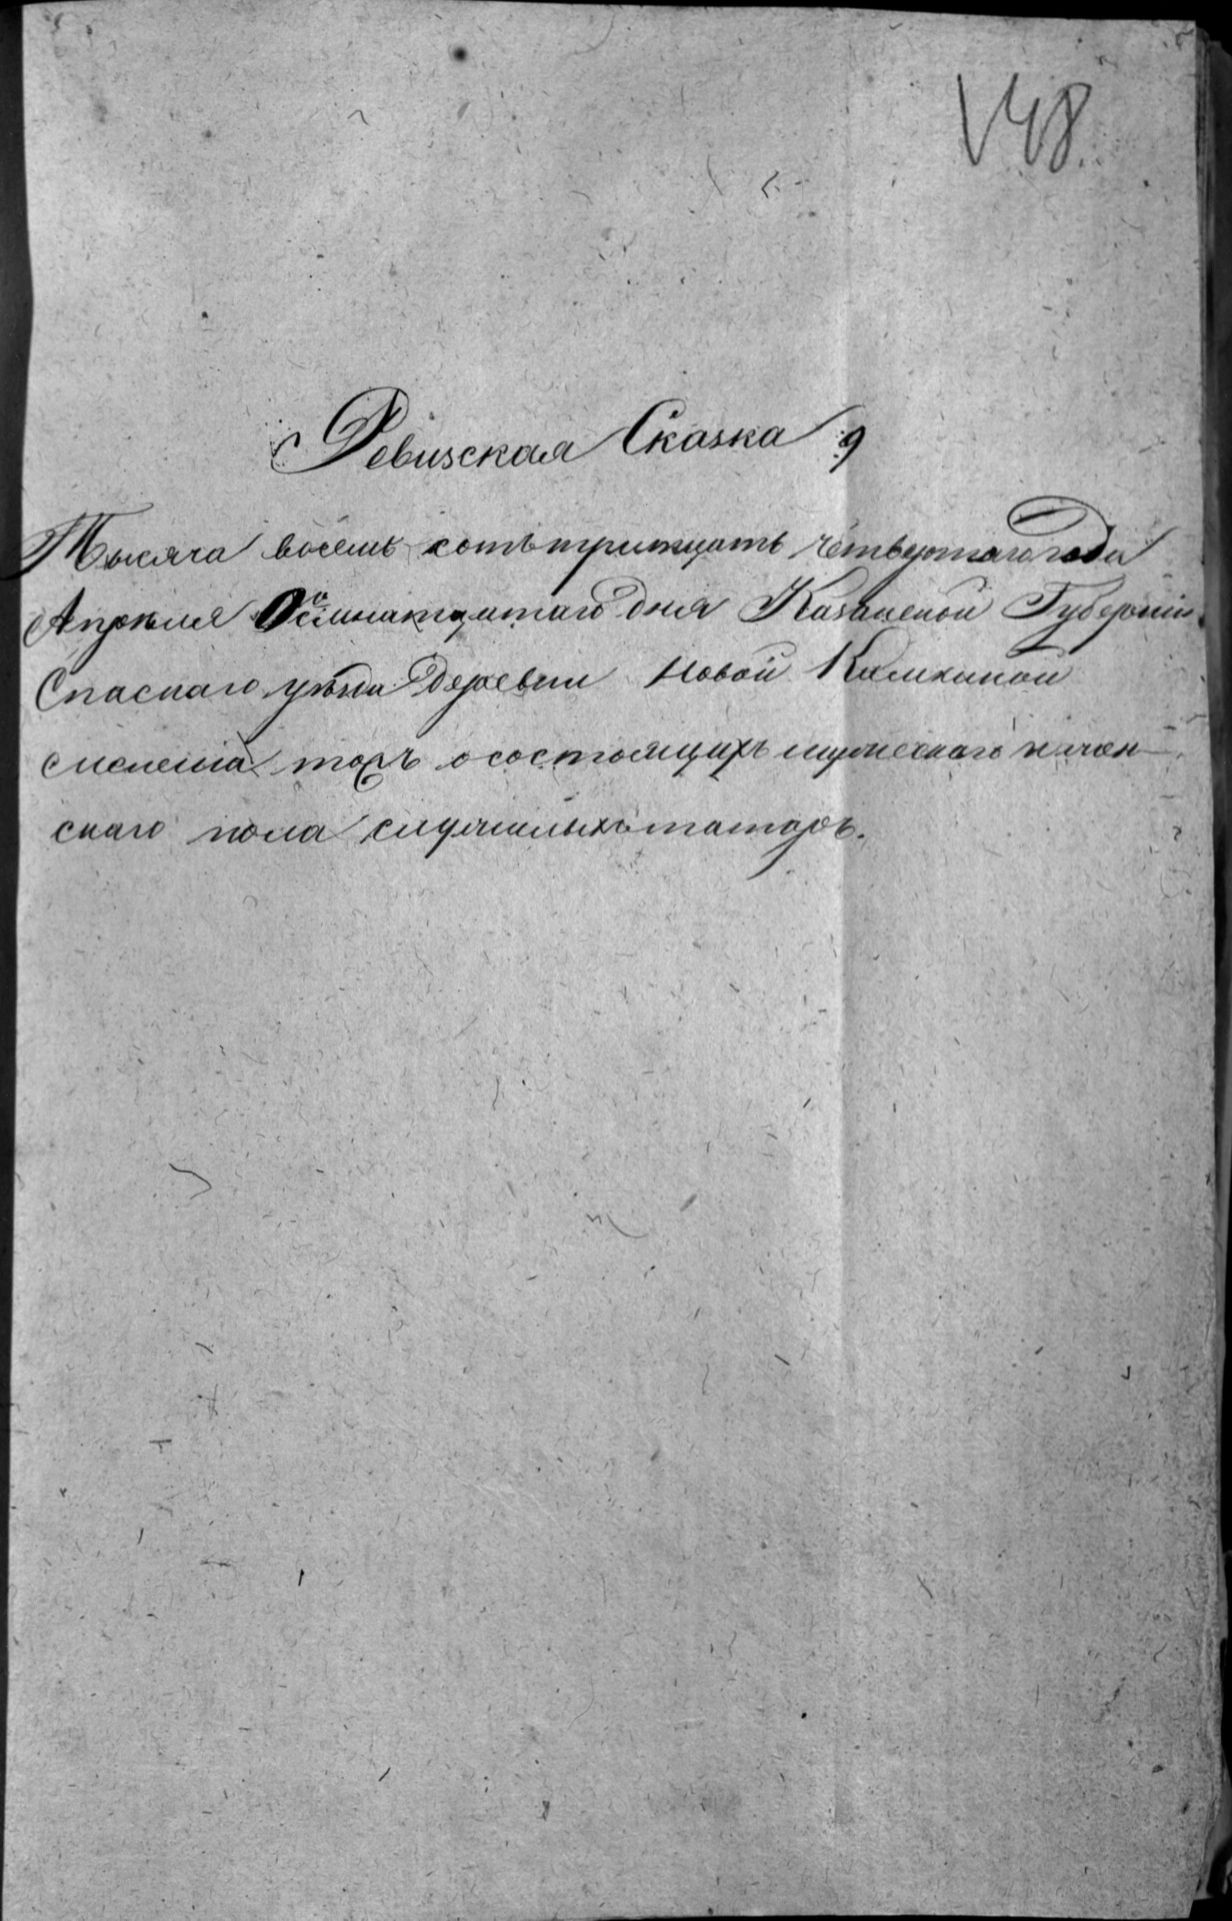 148
Ревизская Сказка 9
Тысяча восемь сотъ тритцать четвертаго года
Апреля дня Казанской Губернии
Спаскаго уезда Деревни Новой
о состоящихъ мужескаго и жен-
скаго пола служилыхъ татаръ.